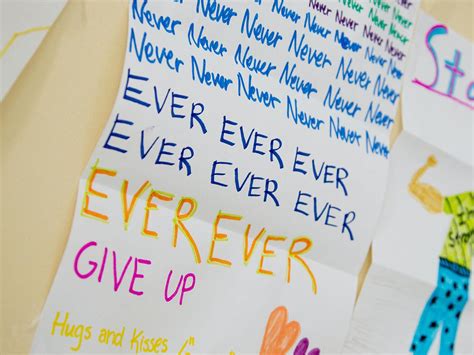 Never Never Never Never
Never Never Never Never Never
Never Never Never Never Never Never
Never Never Never Never Never Never
Never Never Never Never Never Never
EVER EVER EVER
EVER EVER EVER
EVER EVER
GIVE UP
Hugs and Kisses